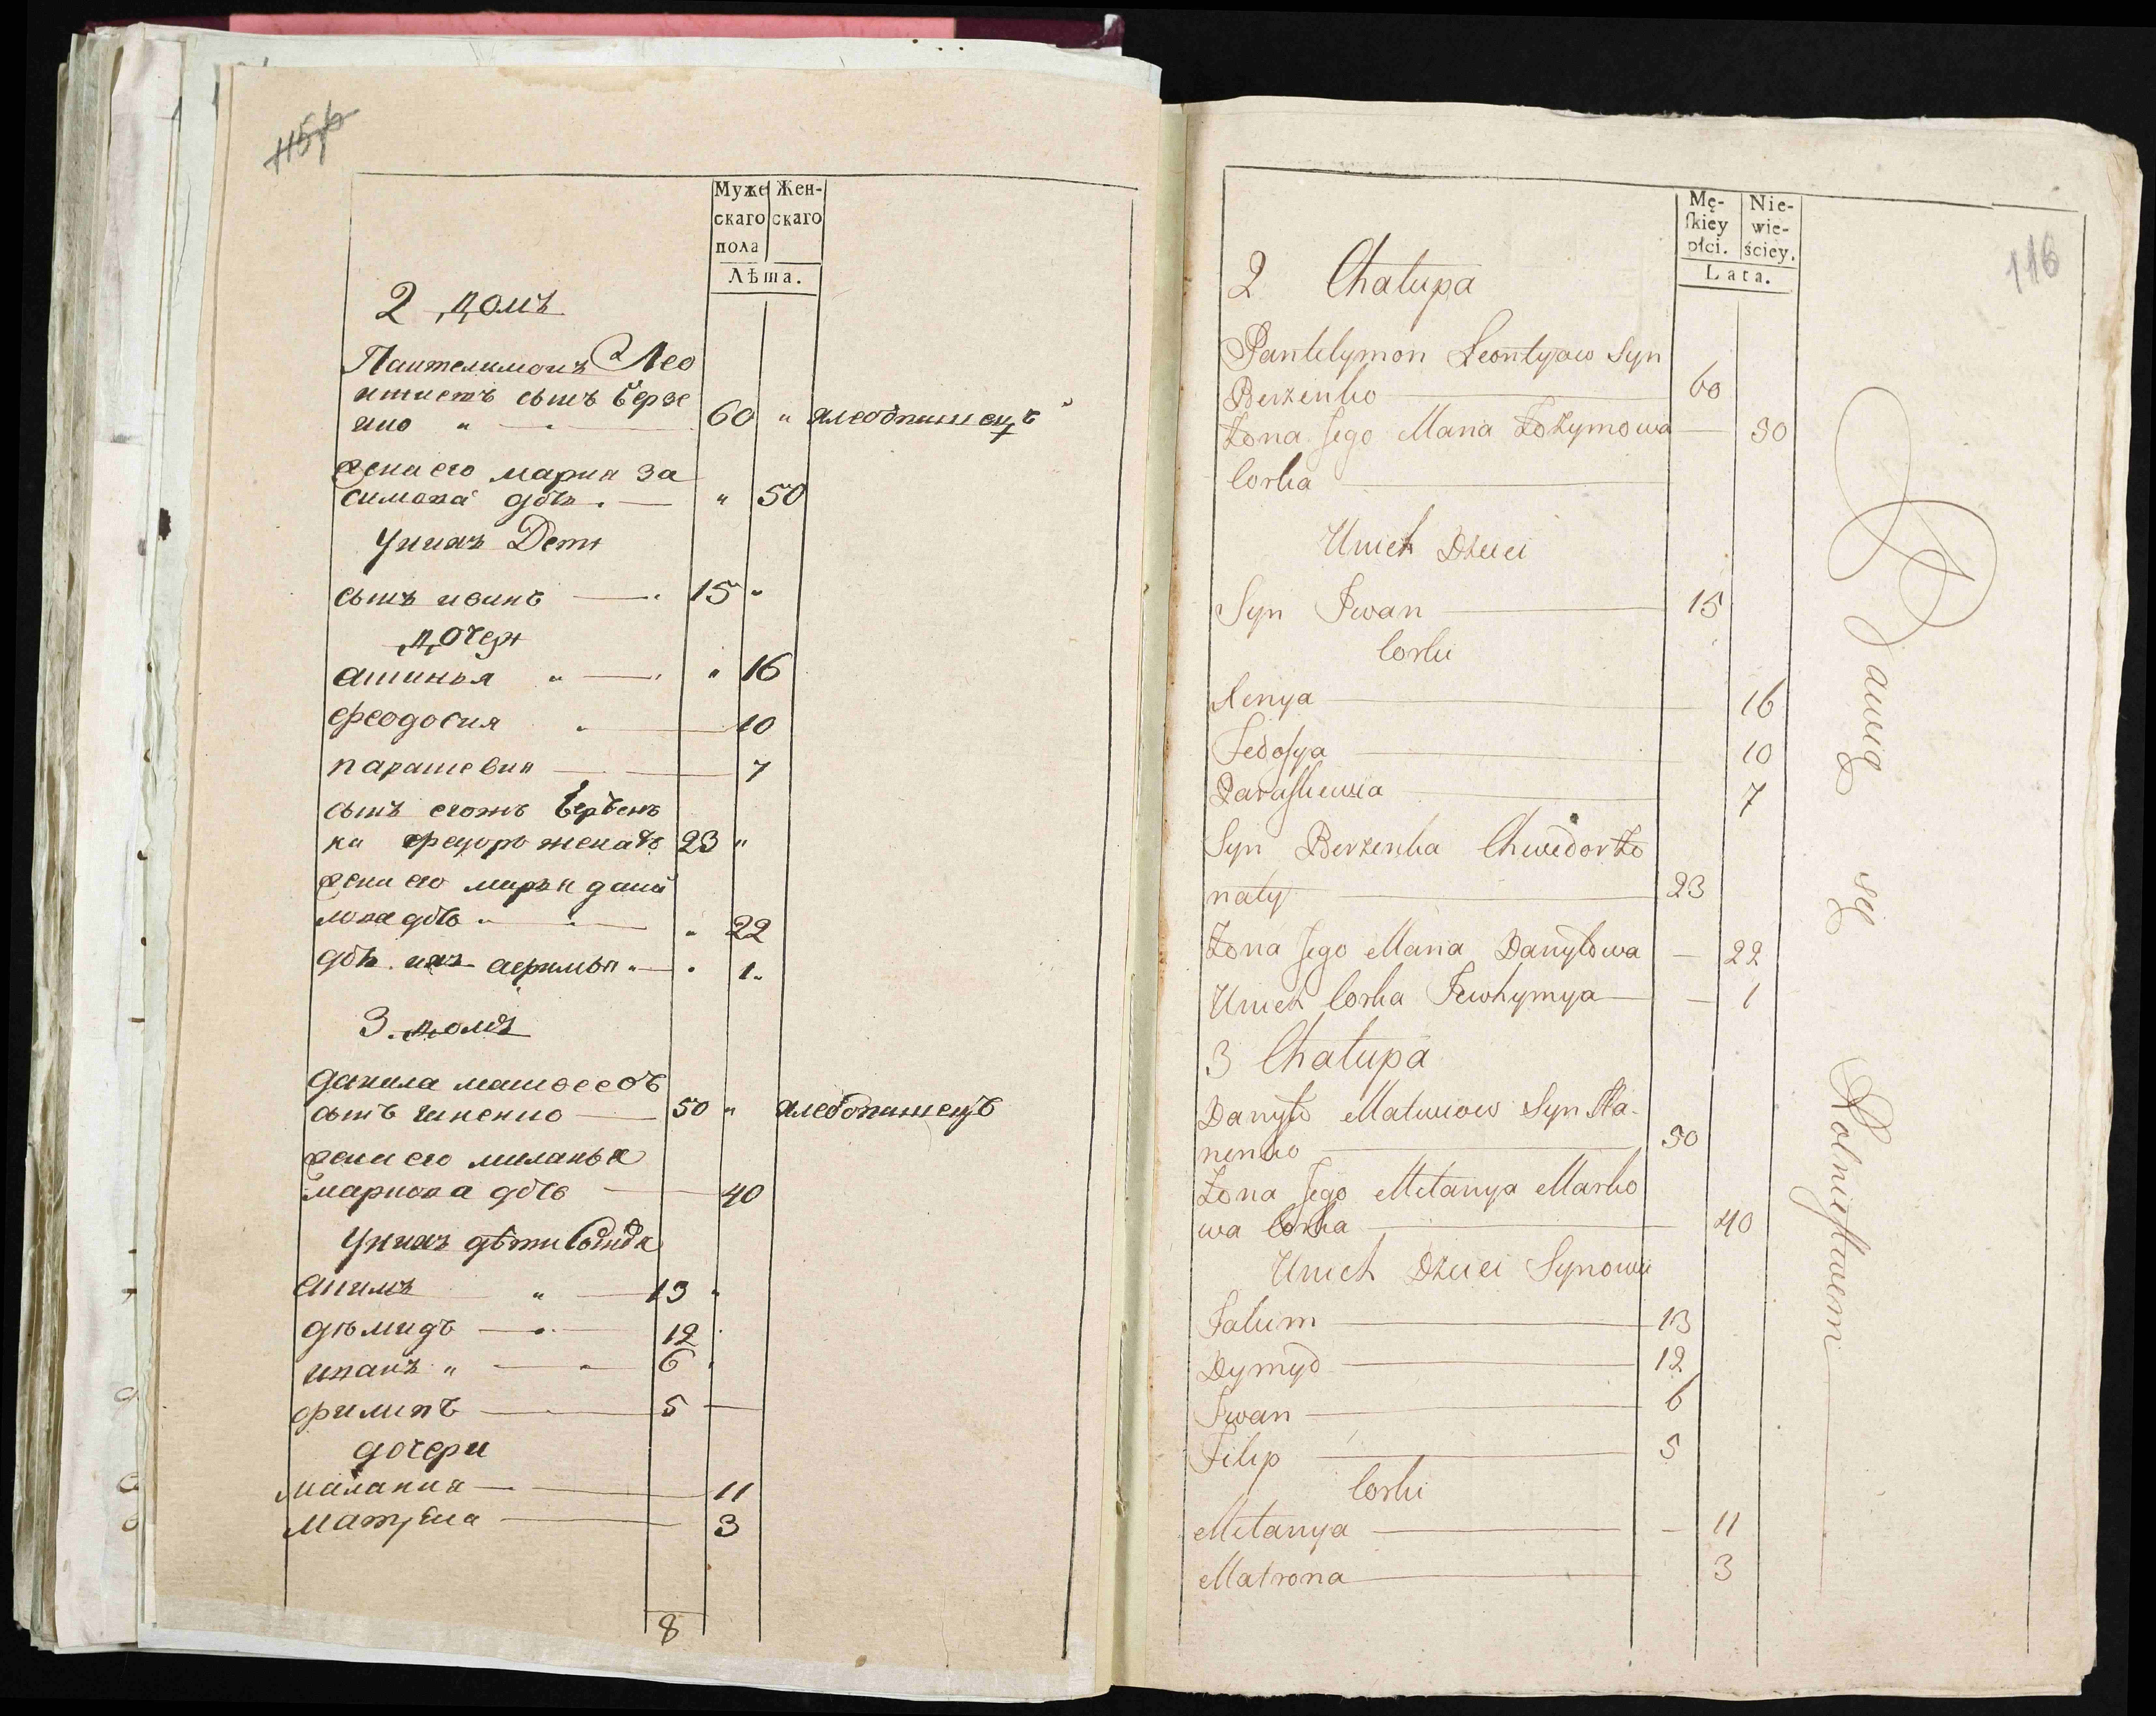 115,б
Муже Жен-
скаго скаго
пола
Лѣта.
2 домъ
Пантелимонъ Лео
нтиевъ сынъ берзе
нко " 60 " хлебопашецъ
жена его мария за
симова дочь " 50
У них Дети
сынъ иванъ 15 "
дочери
" 16
феодосия 10
парашевия 7
сынъ егожъ
ка федоръ женатъ 23 "
жена его марья дани
лова дочь " 22
дочь их афимья " 1
3 домъ
данила матвеевъ
сынъ 50 " хлебопашецъ
жена его миланья
маркова дочь 40
У них дѣти
13 "
дѣмидъ 12
иванъ " 6 "
филипъ 5
дочери
малания 11
Матрена 3
8
116
Mę- Nie-
skiey wie-
płci. ściey.
Lata.
2 Chatupa
Pantelymon Leontyiow Syn
Berzenko 60
Zona Jego Maria Zozymowa 50
Corka
Unich Dzieci
Syn Iwan 15
Corki
Xenya 16
Fedosya 10
Paraskiewia 7
Syn Berzenka Chwedor Zo
naty 23
Zona Jego Maria Danyłowa 22
Unich Corka Iewhymya 1
3 Chatupa
Danyło Matwiow Syn Ha-
nenko 50
Zona Jego Metanya Marko
wa Corka 40
Unich Dzieci Synowie
Jakim 13
Dymyd 12
Iwan 6
Filip 5
Corki
Metanya 11
Matrona 3
Bawią się Rolnictwem